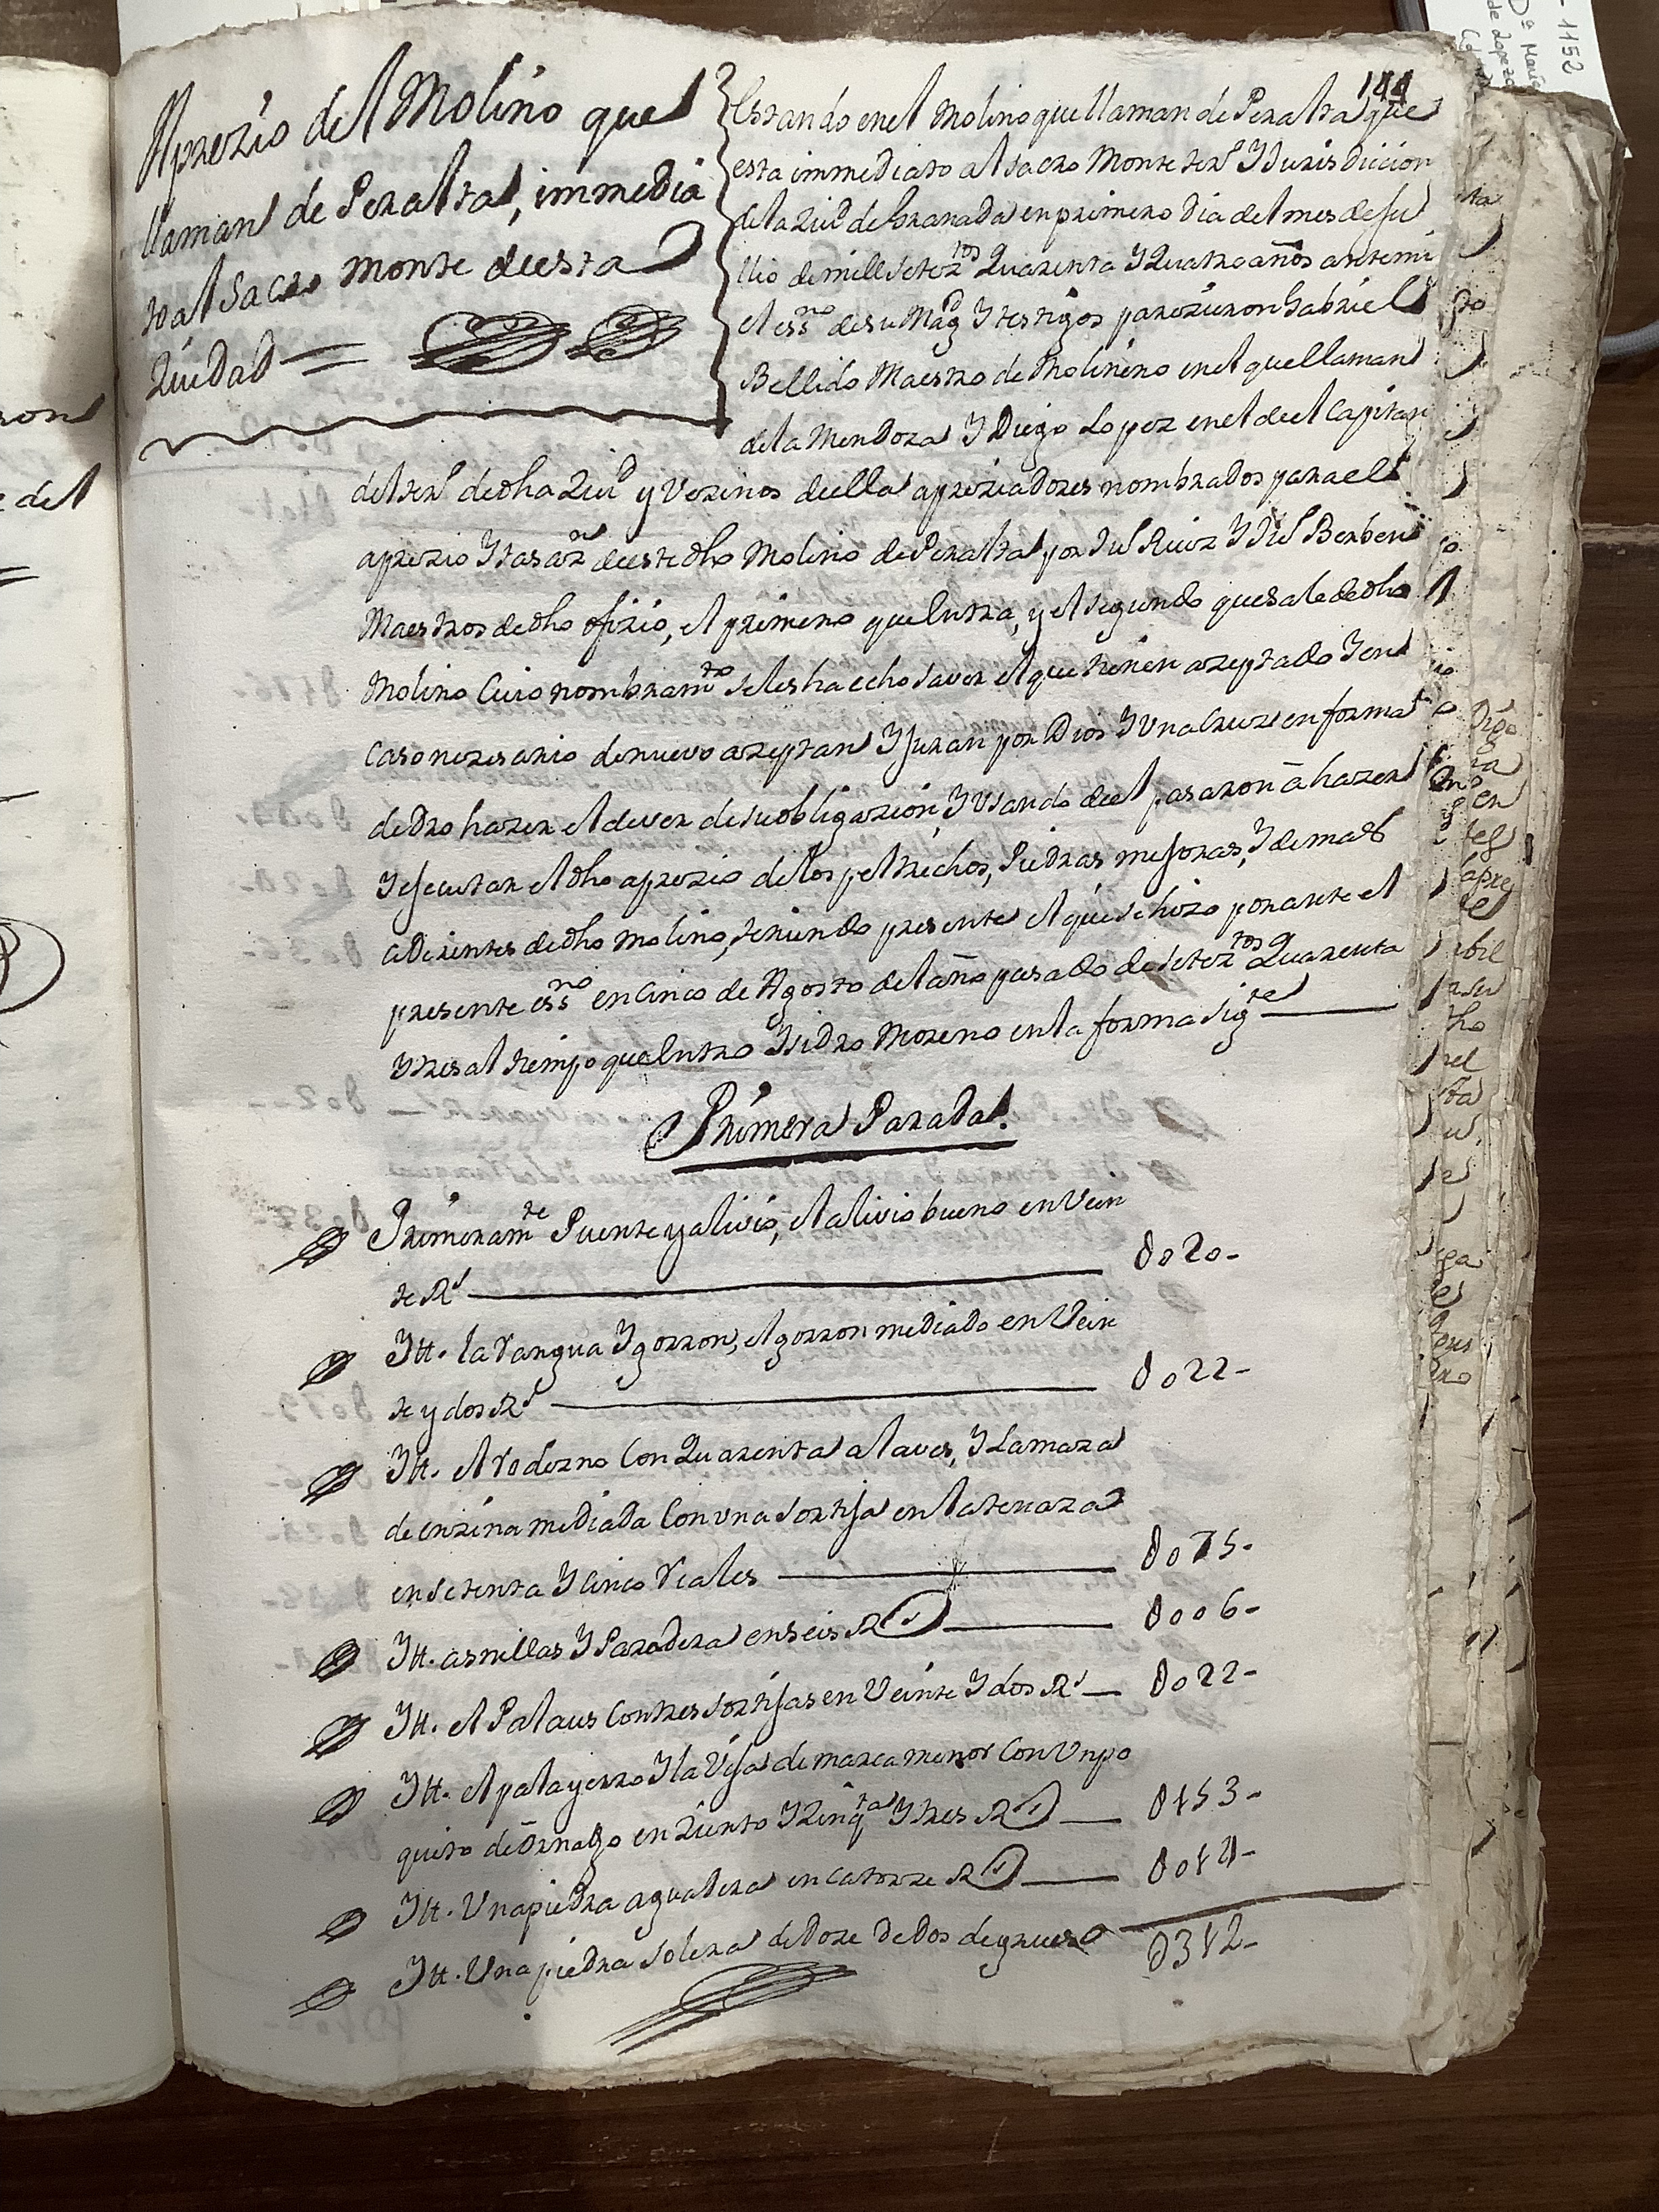 144
Aprezio del Molino que
llaman de Peralta, immedia
to al Sacro Monte de esta
Ziudad =
Estando en el Molino que llaman de Peralta que
esta immediato al sacro Monte term.º Y Jurisdicion
de la Ziu.d de Granada en primero dia del mes de Ju
llio de mill Setez.tos Quarenta Y Quatro años ante mi
el ess.no de su Mag.d Y testigos parezieron Gabriel
Bellido Maestro de Molinero en el que llaman
de la Mendoza Y Diego Lopez en el de el Capitan
del term.º de dha Ziu.d y Vezinos de ella apreziadores nombrados para el
aprezio Y tasaz.n de este dho Molino de Peralta por Ju.º Ruiz Y Berben
Maestros de dho ofizio, el primero que entra, y el segundo que sale de dho
Molino Cuio nombram.to se les ha echo saver el que tienen azeptado Y en
caso nezesario de nuevo azeptan Y Juran por Dios Y Vna Cruz en forma
de Dro hazer el dever de su obligazion, Y Vsando de el pasaron â hazer
Y ejecutar el dho aprezio de los peltrechos, Piedras mejoras, Y demas
adherentes de dho Molino, teniendo presente el que se hizo por ante el
presente ess.no en Cinco de Agosto del año pasado de Setez.tos Quarenta
Y tres al tiempo que entro Ysidro Moreno en la forma sig.te
Primera Parada
Primeram.te Puente y alivio, el alivio bueno en Vein
te R.s 8020-
Itt. la rangua Y gorron, el gorron mediado en Vein
te y dos R.s 8022-
Itt. el rodezno Con Quarenta alaves, Y La maza
de enzina mediada Con vna Sortija en la tenaza
en Setenta Y Cinco reales 8075-
Itt. asnillas Y Paradera en seis R.s 8006-
Itt. el Palaus Con tres Sortijas en Veinte Y dos R.s 8022-
Itt. el palayerro Y la Vija de marca menor Con Vn po
quito de en Ziento Y Zinq.ta Y tres R.s 0153-
Itt. Vna piedra aguadera en Catorze R.s 8014-
Itt. Vna piedra Solera de Doze Dedos de grueso
0312-